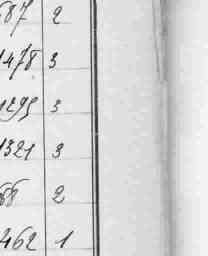 687 2
1478 3
1295 3
1321 3
68 2
462 1